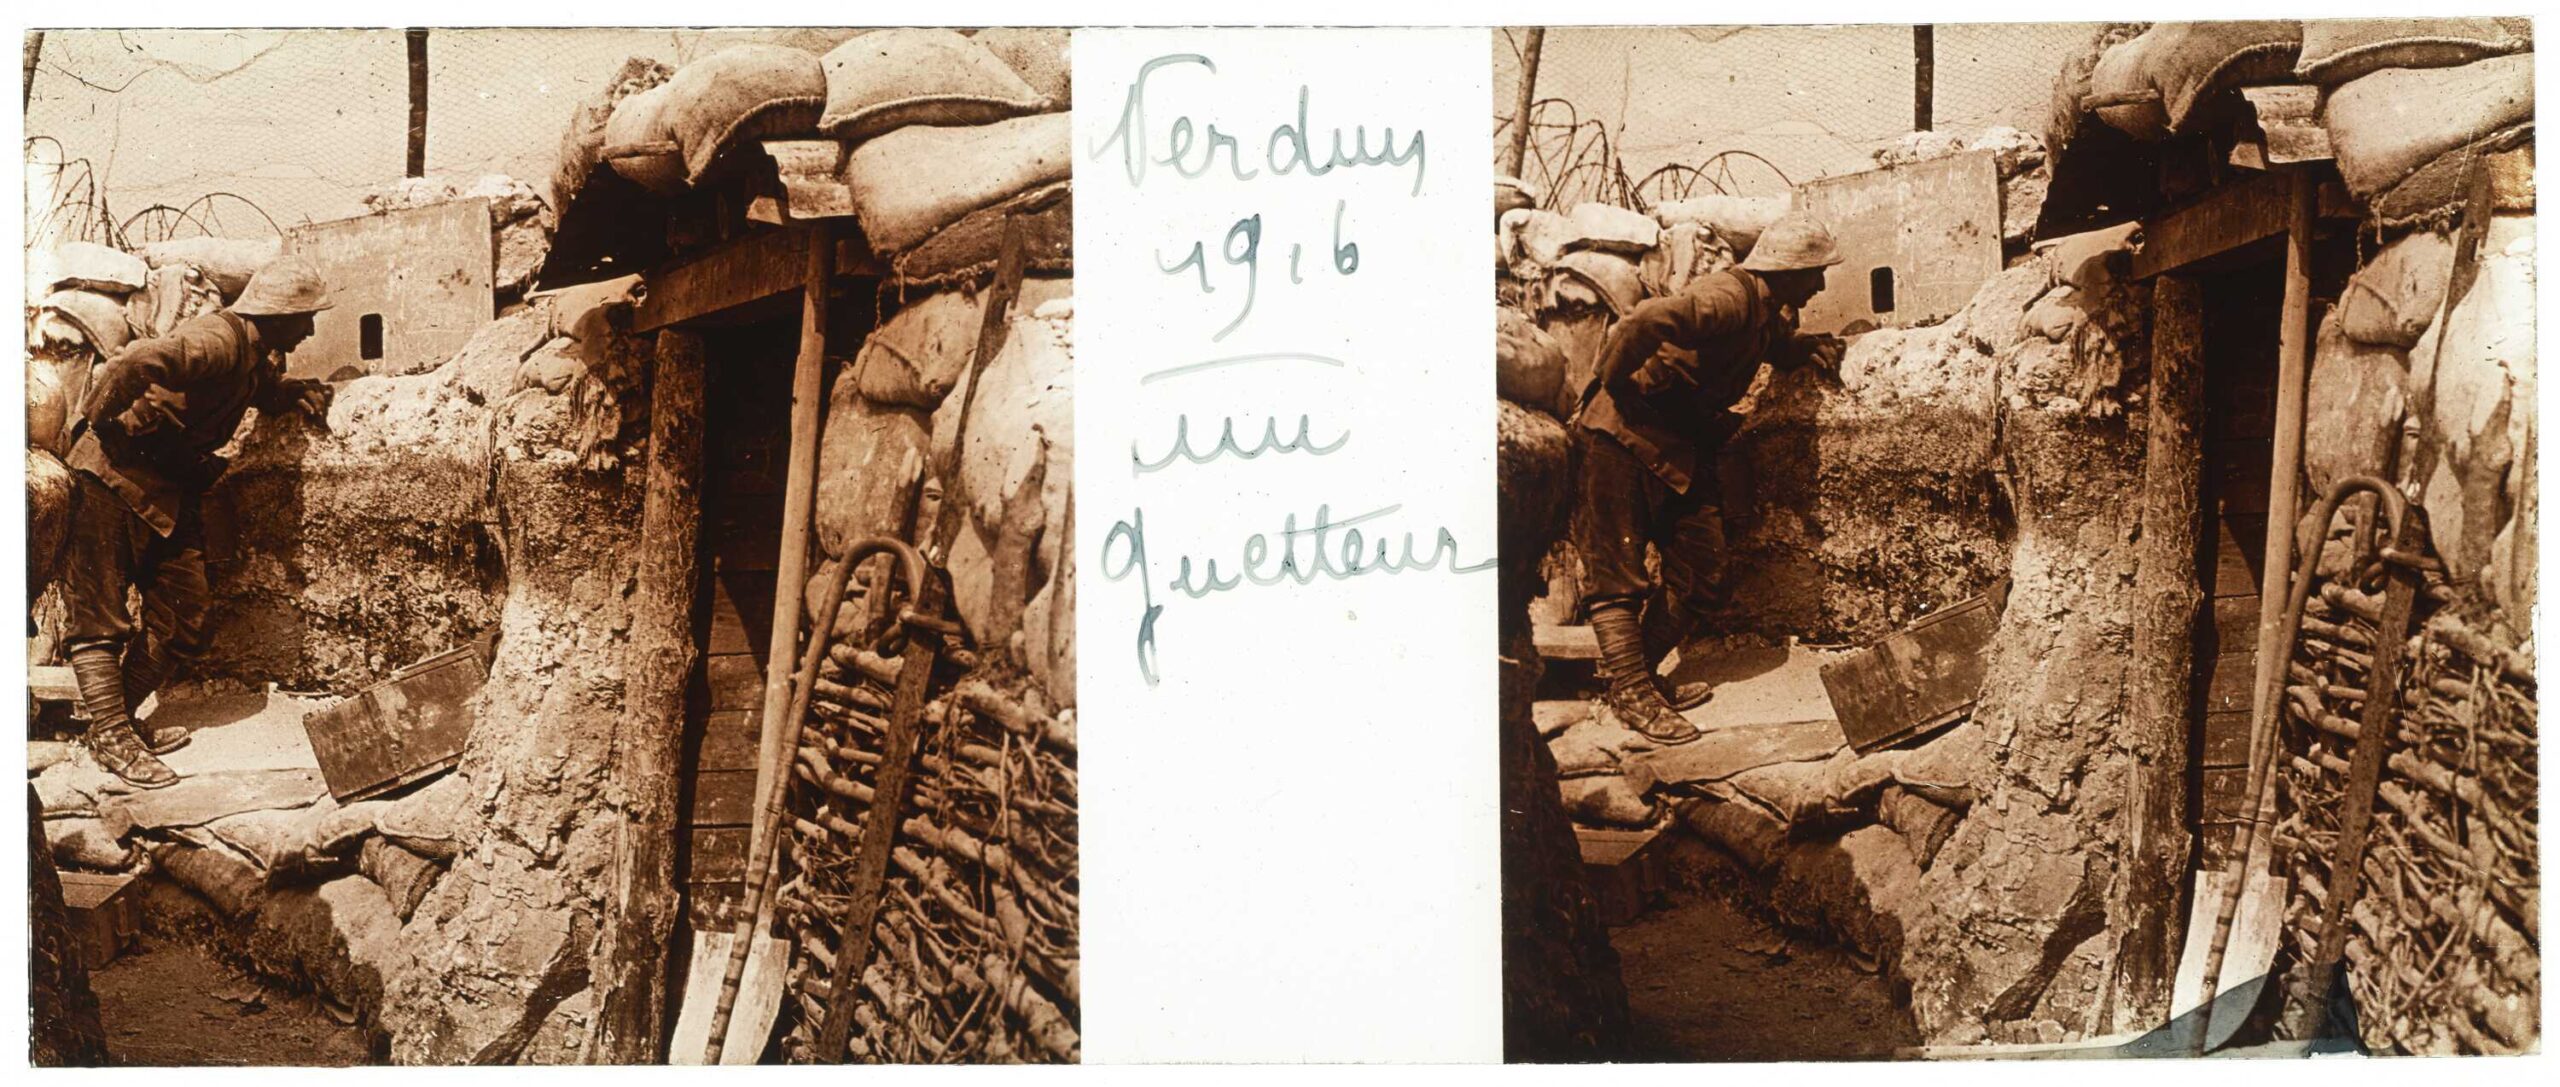 Verdun
1916
un
guetteur